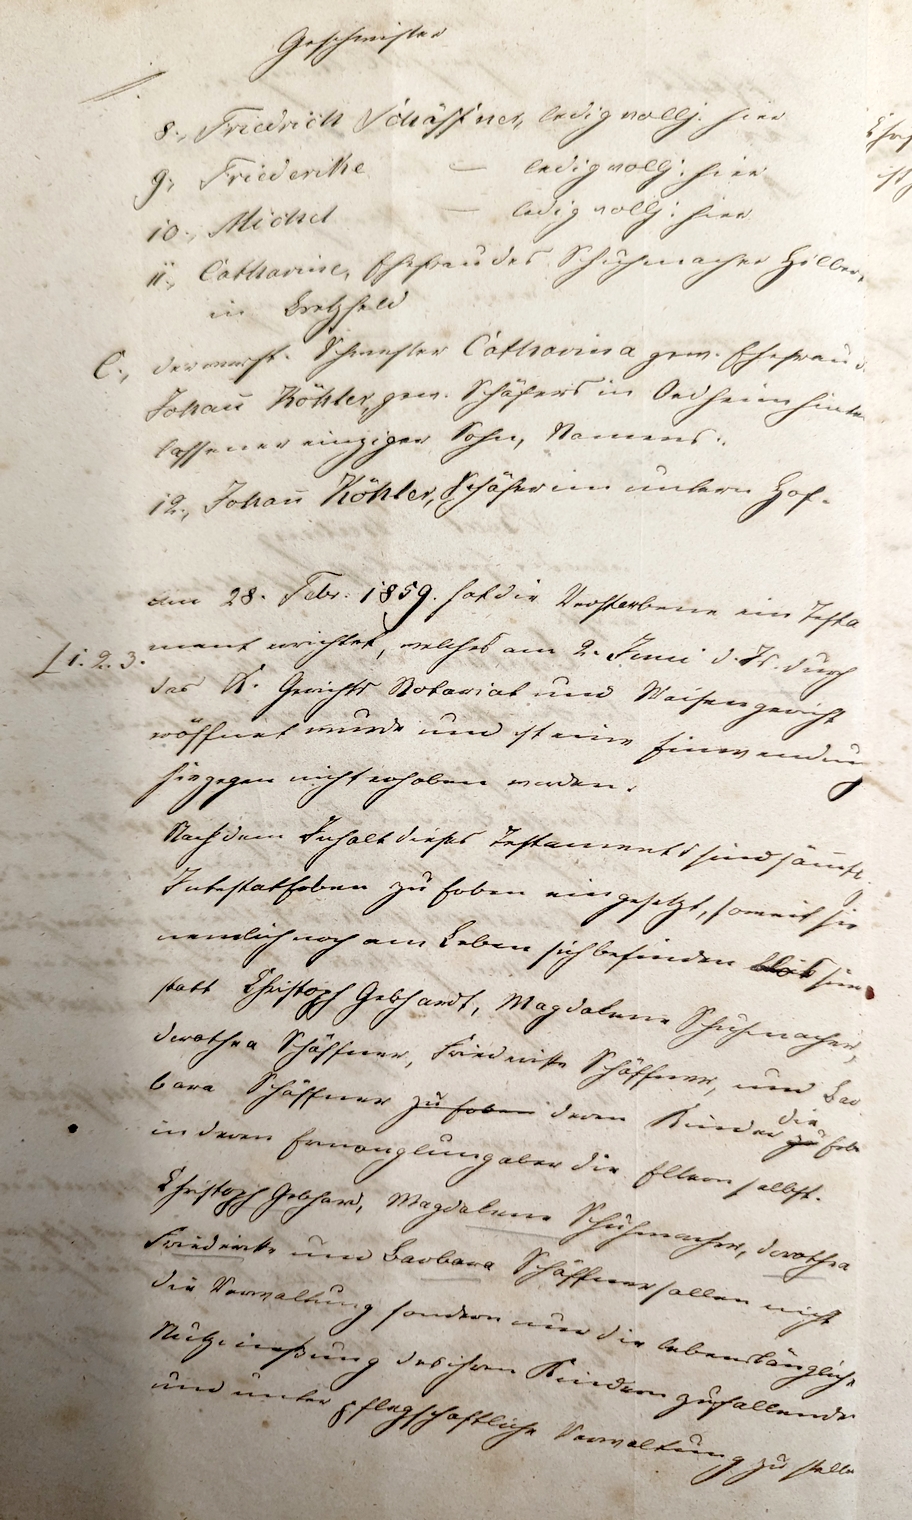 Geschwister
8., Friedrich Schäffner, ledig vollj. hier
9., Friederike — ledig vollj: hier
10., Michel — ledig vollj: hier
11., Catharine, Ehefrau des Schuhmacher Hilber,
in Bretzfeld
C., der verst. Schwester Catharina gew. Ehefrau d.
Johañ Köhler, gew. Schäfers in Oedheim hinter
lassener einziger Sohn, Namens:
12., Johañ Köhler, Schäfer im untern Hof.
am 28. Febr. 1859. hat die Verstorbene ein Testa
[1. 2. 3. ment errichtet, welches am 2. Juni d. Js. durch
das K. Gerichts Notariat und Waisengericht
eröffnet wurde und ist eine Einwendung
hiegegen nicht erhoben worden.
Nach dem Inhalt dieses Testaments sind sämtl.
Intestaterben zu Erben eingesetzt, soweit sie
nemlich noch am Leben sich befinden
statt Christoph Gebhardt, Magdalene Schuhmacher,
dorothea Schäffner, Friederike Schäffner, und Bar
bara Schäffner zu Erben deren Kinder die zu Erb
in deren Ermanglung aber die Eltern selbst.
Christoph Gebhard, Magdalene Schuhmacher, dorothea
Friederike und Barbara Schäffner sollen nicht
die Verwaltung sondern nur die lebenslängliche
Nutznießung des ihren Kindern zufallende
und unter pflegschaftliche Verwaltung zu stelle